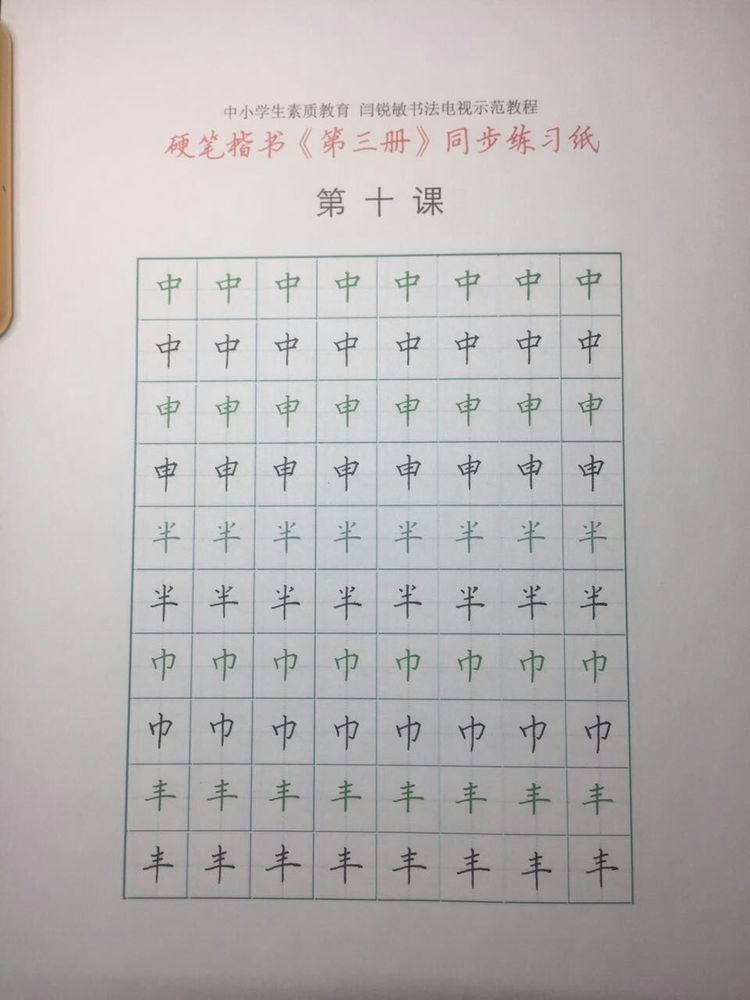 中小学生素质教育 闫锐敏书法电视示范教程
硬笔楷书《第三册》同步练习纸
第十课
中中中中中中中中
中中中中中中中中
申申申申申申申申
申申申申申申申申
半半半半半半半半
半半半半半半半半
巾巾巾巾巾巾巾巾
巾巾巾巾巾巾巾巾
丰丰丰丰丰丰丰丰
丰丰丰丰丰丰丰丰